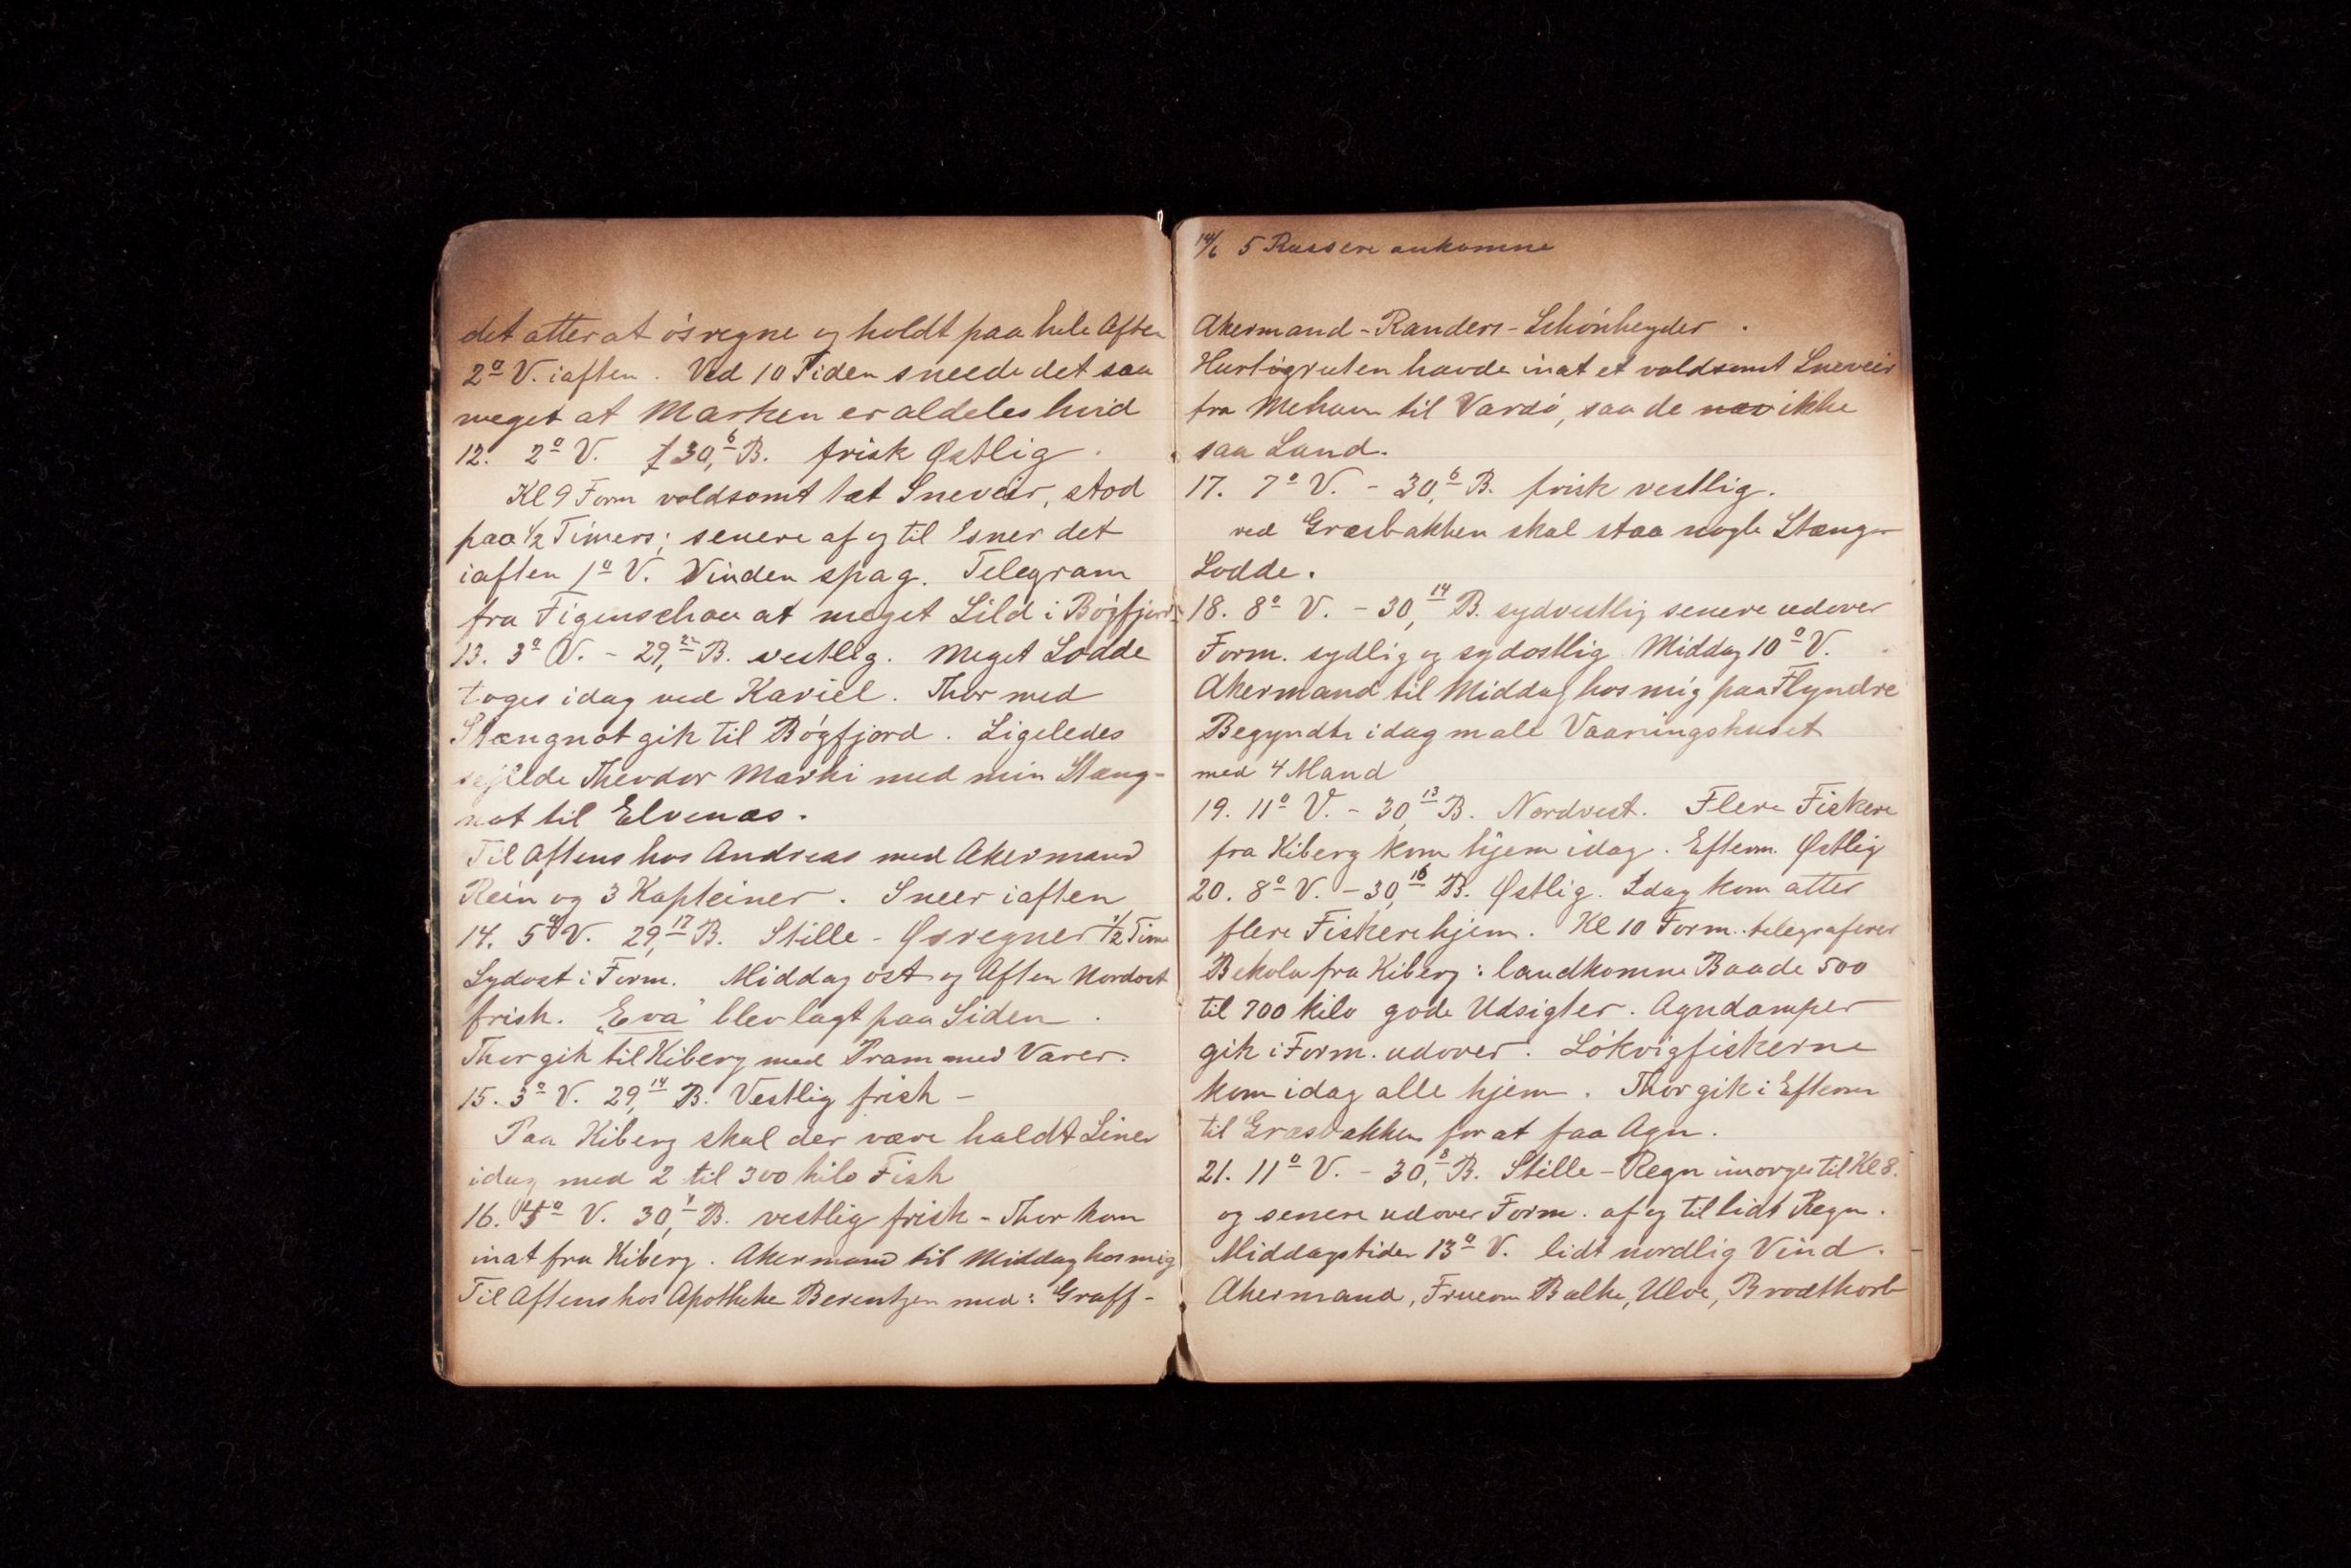 det atter at ösregne og holdt paa hele Aften
2° V. iaften. Ved 10 Tiden sneede det saa
meget at Marken er aldeles hvid
12. 2° V. 30,6 B. frisk Østlig.
Kl 9 Form voldsomt tæt Sneveir, stod
paa ½ Times; senere af og til sner det
iaften 1° V. Vinden spag. Telegram
fra Figenschou at meget Sild i Bøgfjord
13. 3° V. - 29, B. vestlig. Meget Lodde
toges idag ved Kariel. Thor med
Stængnot gik til Bøgfjord. Ligeledes
sejlede Theodor Marki med min Stæng-
not til Elvenæs.
Til Aftens hos Andreas med Akermand
Rein og 3 Kapteiner. Sneer iaften
14. 5° V. 29,17 B. Stille - Øsregner ½ Time
Sydost i Form. Middag ost og Aften Nordost
frisk. "Eva" blev lagt paa Siden.
Thor gik til Kiberg med Pram med Varer.
15. 3° V. 29,14 B. Vestlig frisk -
Paa Kiberg skal der være haldt Liner
idag med 2 til 300 kilo Fisk
16. V. 30, B. vestlig frisk - Thor kom
inat fra Kiberg. Akermand til Middag hos mig
Til Aftens hos Apotheker Berentzen med: Graff-
14/6 5 Russere ankomne
Akermand - Randers - Schönheyder.
Hurtigruten havde inat et voldsomt Sneveir
fra Mehavn til Vardö, saa de ikke
saa Land.
17. 7° V. - 30,6 B. frisk vestlig.
ved Græsbakken skal staa nogle Stænger
Lodde.
18. 8° V. - 30,14 B. sydvestlig senere udover
Form. sydlig og sydostlig Middag 10° V.
Akermand til Middag hos mig paa Flyndre
Begyndte idag male Vaaningshuset
med 4 Mand
19. 11° V. - 30,13 B. Nordvest. Flere Fiskere
fra Kiberg kom hjem idag. Efterm. Østlig
20. 8° V. - 30,16 B. Østlig. Idag kom atter
flere Fiskere hjem. Kl 10 Form. telegraferer
Bekolu fra Kiberg: landkomne Baade 500
til 700 kilo gode Udsigter. Agndamper
gik i Form. udover. Lökvigfiskerne
kom idag alle hjem. Thor gik i Efterm
til Græsbakken for at faa Agn.
21. 11° V. - 30,8 B. Stille - Regn imorges til Kl 8.
og senere udover Form. af og til lidt Regn.
Middagstider 13° V. lidt nordlig Vind.
Akermand, Fruerne Balke, Ulve, Brodtkorb